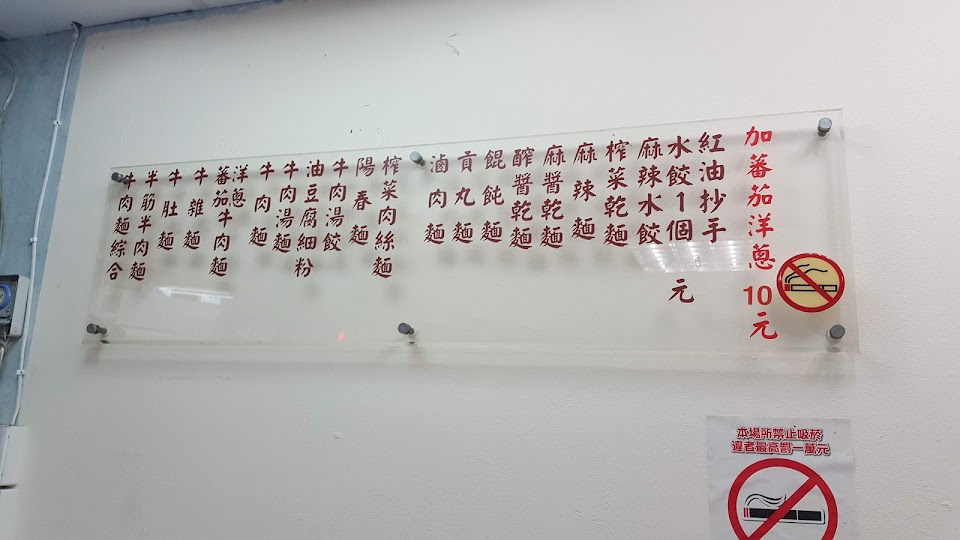 加蕃茄洋蔥10元
紅油抄手
水餃1個 元
麻辣水餃
榨菜乾麵
麻辣麵
麻醬乾麵
醡醬乾麵
餛飩麵
貢丸麵
滷肉麵
榨菜肉絲麵
陽春麵
牛肉湯餃
油豆腐細粉
牛肉湯麵
牛肉麵
洋蔥
蕃茄牛肉麵
牛雜麵
牛肚麵
半筋半肉麵
牛肉麵綜合
本場所禁止吸菸
違者最高罰一萬元